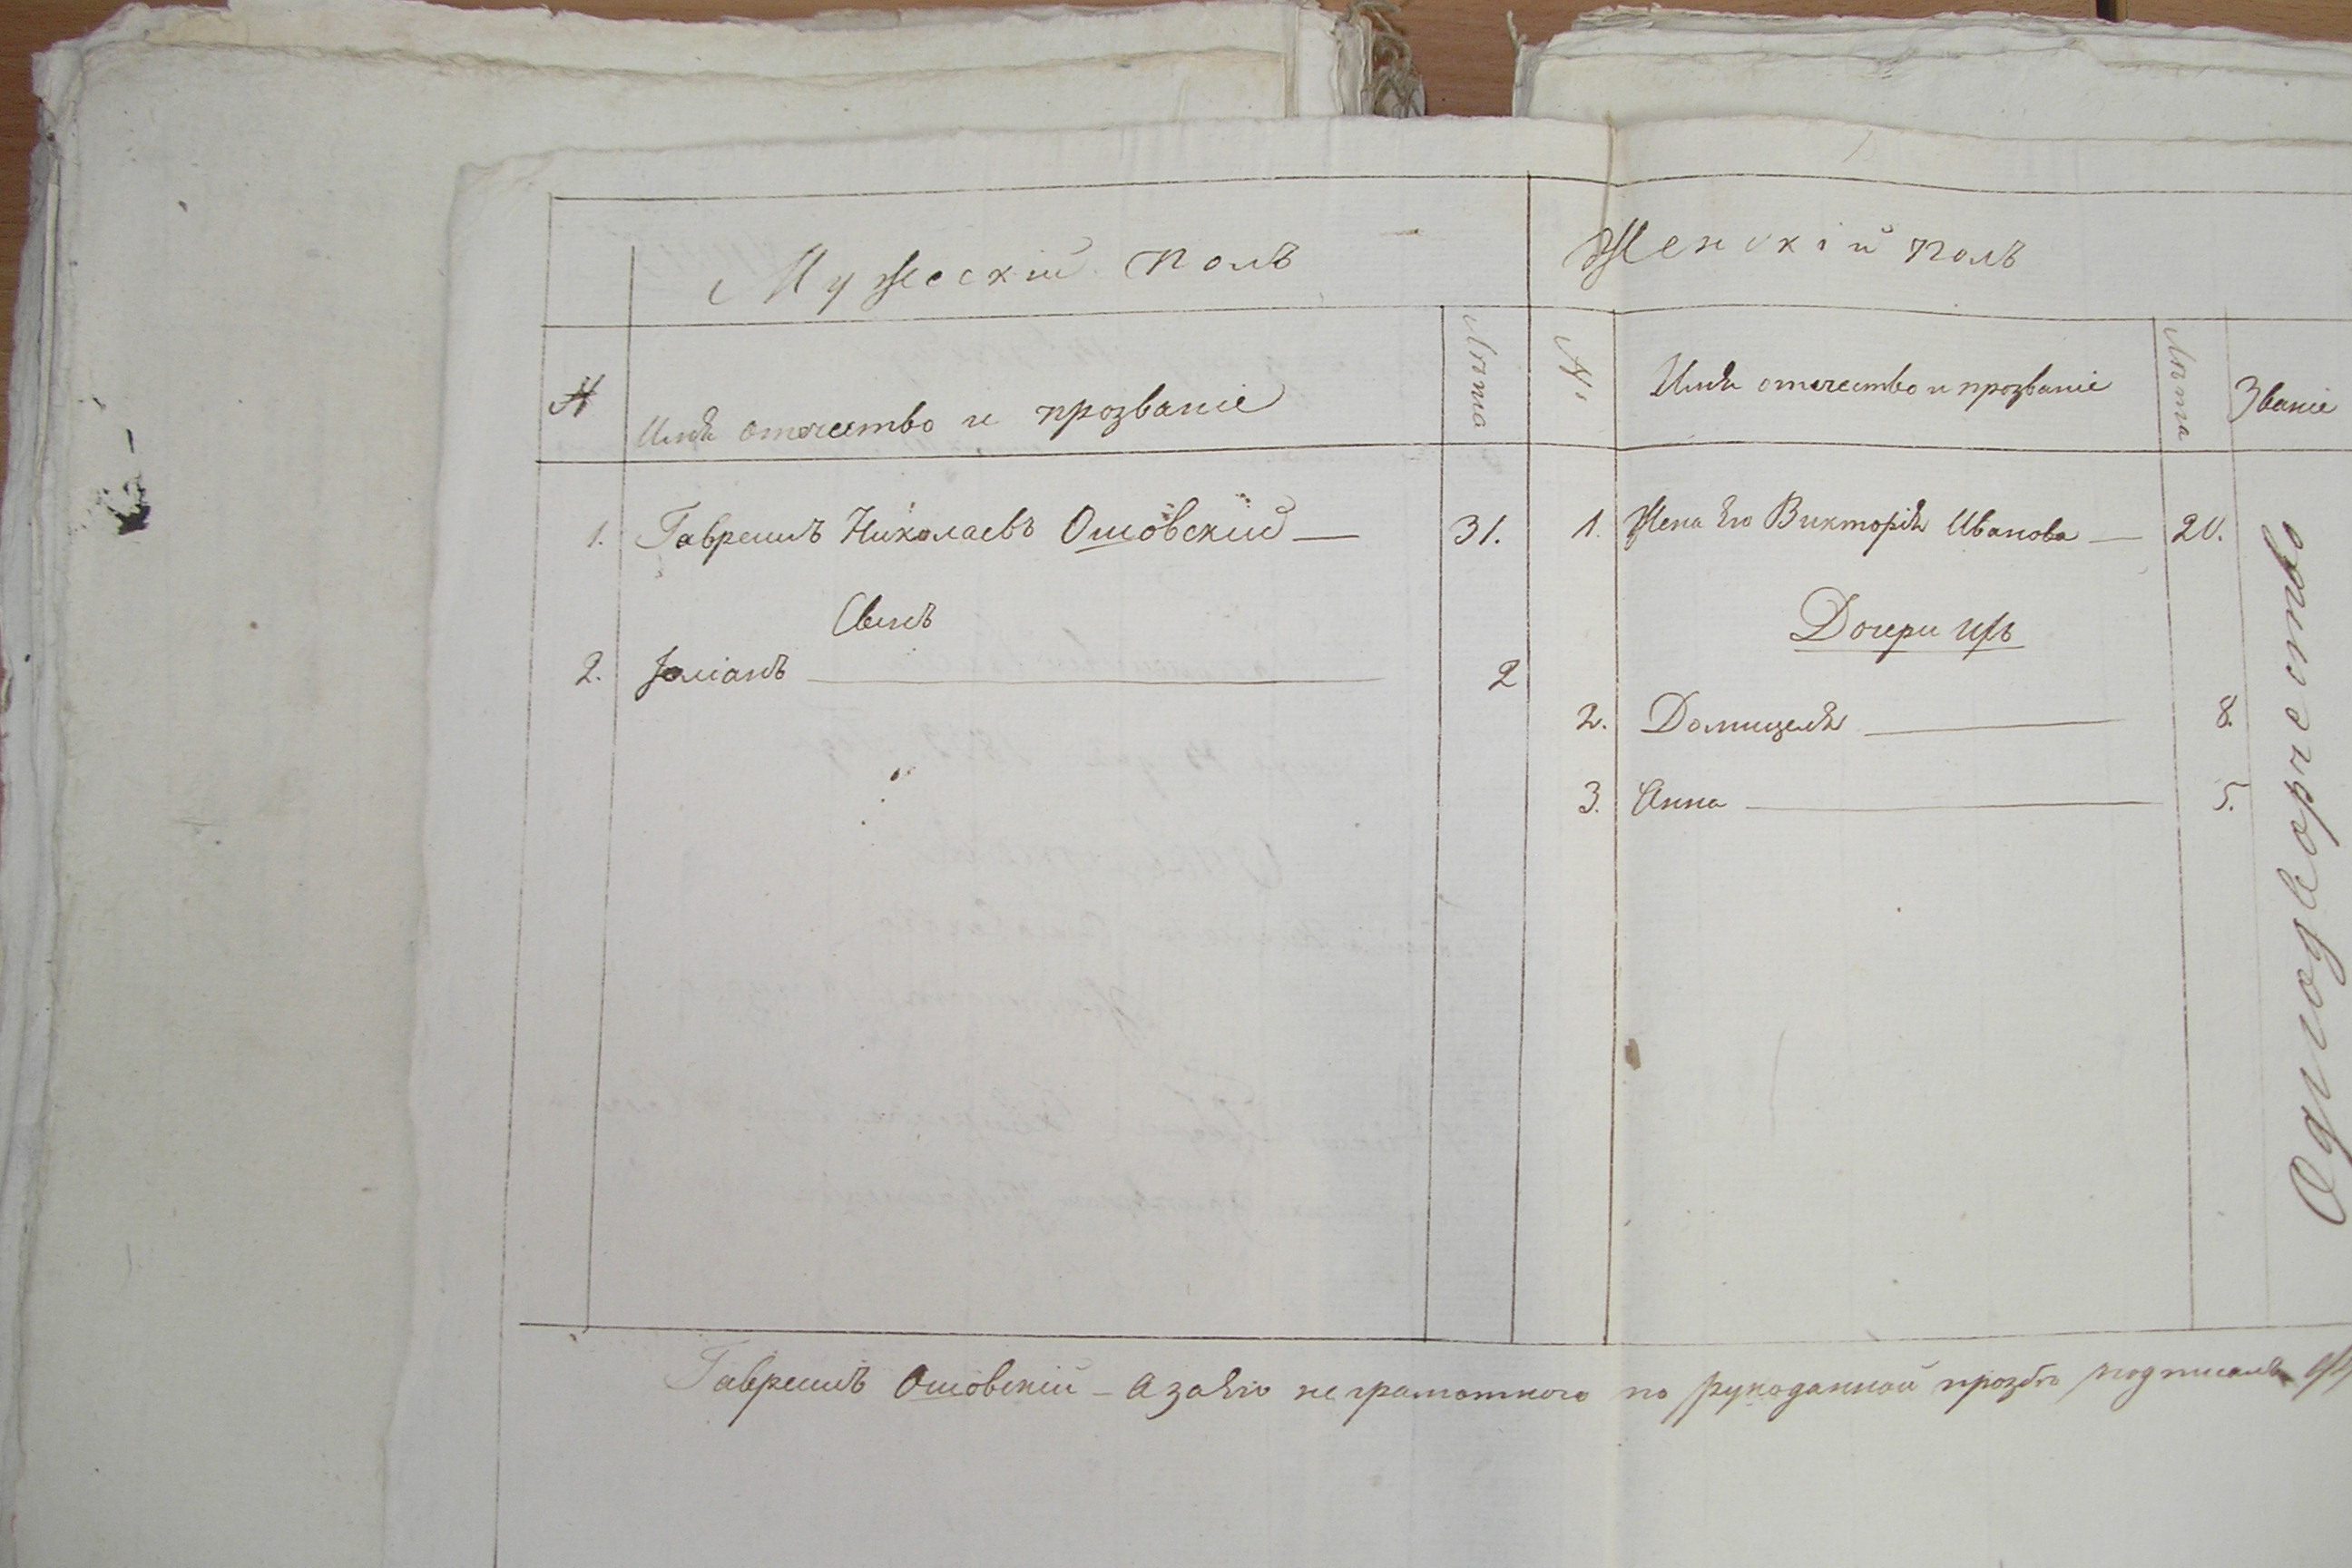 Мужескій полъ
Женскій полъ
№
Имя отчество и прозваніе
Лѣта
№
Имя отчество и прозваніе
Лѣта
Званіе
1. Гавреилъ Николаевъ Ошовскій — 31.
1. Жена Его Викторія Иванова — 20.
Сынъ
Дочери ихъ
2. Юліанъ — 2
2. Домицеля — 8.
3. Анна — 5.
Однодворчество
Гавреилъ Ошовскій – А за Его не грамотного по рукоданной прозбѣ подписалъ